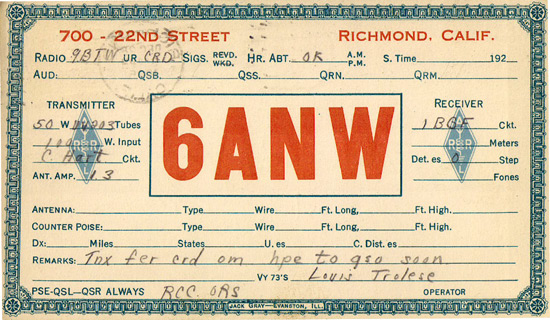 700 - 22ND STREET RICHMOND, CALIF.
RADIO 9BTW UR CRD SIGS. REVD. WKD. HR. ABT. OK A.M. P.M. S. TIME 192
AUD: QSB. QSS. QRN. QRM.
TRANSMITTER
50 W. Tubes
100 W. Input
C Hart Ckt.
ANT. AMP. 1.3
6ANW
RECEIVER
1 BGF Ckt.
Meters
Det. es 0 Step
Fones
ANTENNA: Type Wire Ft. Long, Ft. High.
COUNTER POISE: Type Wire Ft. Long, Ft. High.
DX: Miles States U. es C. Dist. es
REMARKS: Tnx fer crd om hpe to qso soon
VY 73'S Louis Trolese
PSE-QSL-QSR ALWAYS RCC ORS OPERATOR
JACK GRAY—EVANSTON, ILL.